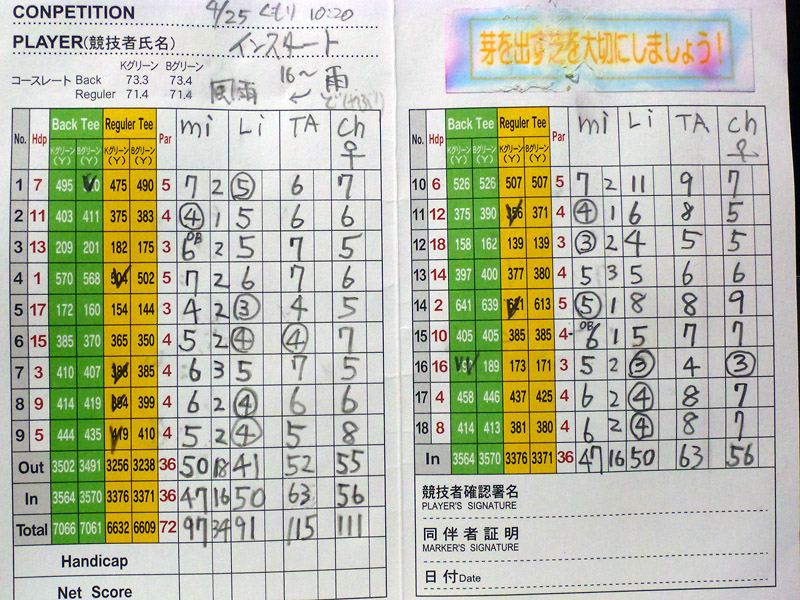 CONPETITION 4/25 くもり 10:20
PLAYER(競技者氏名) インスタート
コースレート Kグリーン Bグリーン
Back 73.3 73.4
Reguler 71.4 71.4
風雨 16〜 雨
芽を出す芝を大切にしましょう!
No. Hdp Back Tee Reguler Tee Par mi Li TA Ch
Kグリーン(Y) Bグリーン(Y) Kグリーン(Y) Bグリーン(Y) ♀
1 7 495 475 490 5 7 2 5 6 7
2 11 403 411 375 383 4 4 1 5 6 6
3 13 209 201 182 175 3 OB 6 2 5 7 5
4 1 570 568 504 502 5 7 2 6 7 6
5 17 172 160 154 144 3 4 2 3 4 5
6 15 385 370 365 350 4 5 2 4 4 7
7 3 410 407 386 385 4 6 3 5 7 5
8 9 414 419 394 399 4 6 2 4 6 6
9 5 444 435 419 410 4 5 2 4 5 8
Out 3502 3491 3256 3238 36 50 18 41 52 55
In 3564 3570 3376 3371 36 47 16 50 63 56
Total 7066 7061 6632 6609 72 97 34 91 115 111
Handicap
Net Score
No. Hdp Back Tee Reguler Tee Par mi Li TA Ch
Kグリーン(Y) Bグリーン(Y) Kグリーン(Y) Bグリーン(Y) ♀
10 6 526 526 507 507 5 7 2 11 9 7
11 12 375 390 356 371 4 4 1 6 8 5
12 18 158 162 139 139 3 3 2 4 5 5
13 14 397 400 377 380 4 5 3 5 6 6
14 2 641 639 621 613 5 5 1 8 8 9
15 10 405 405 385 385 4 OB 6 1 5 7 7
16 16 189 173 171 3 5 2 3 4 3
17 4 458 446 437 425 4 6 2 4 8 7
18 8 414 413 381 380 4 6 2 4 8 7
In 3564 3570 3376 3371 36 47 16 50 63 56
競技者確認署名
PLAYER'S SIGNATURE
同伴者証明
MARKER'S SIGNATURE
日付Date